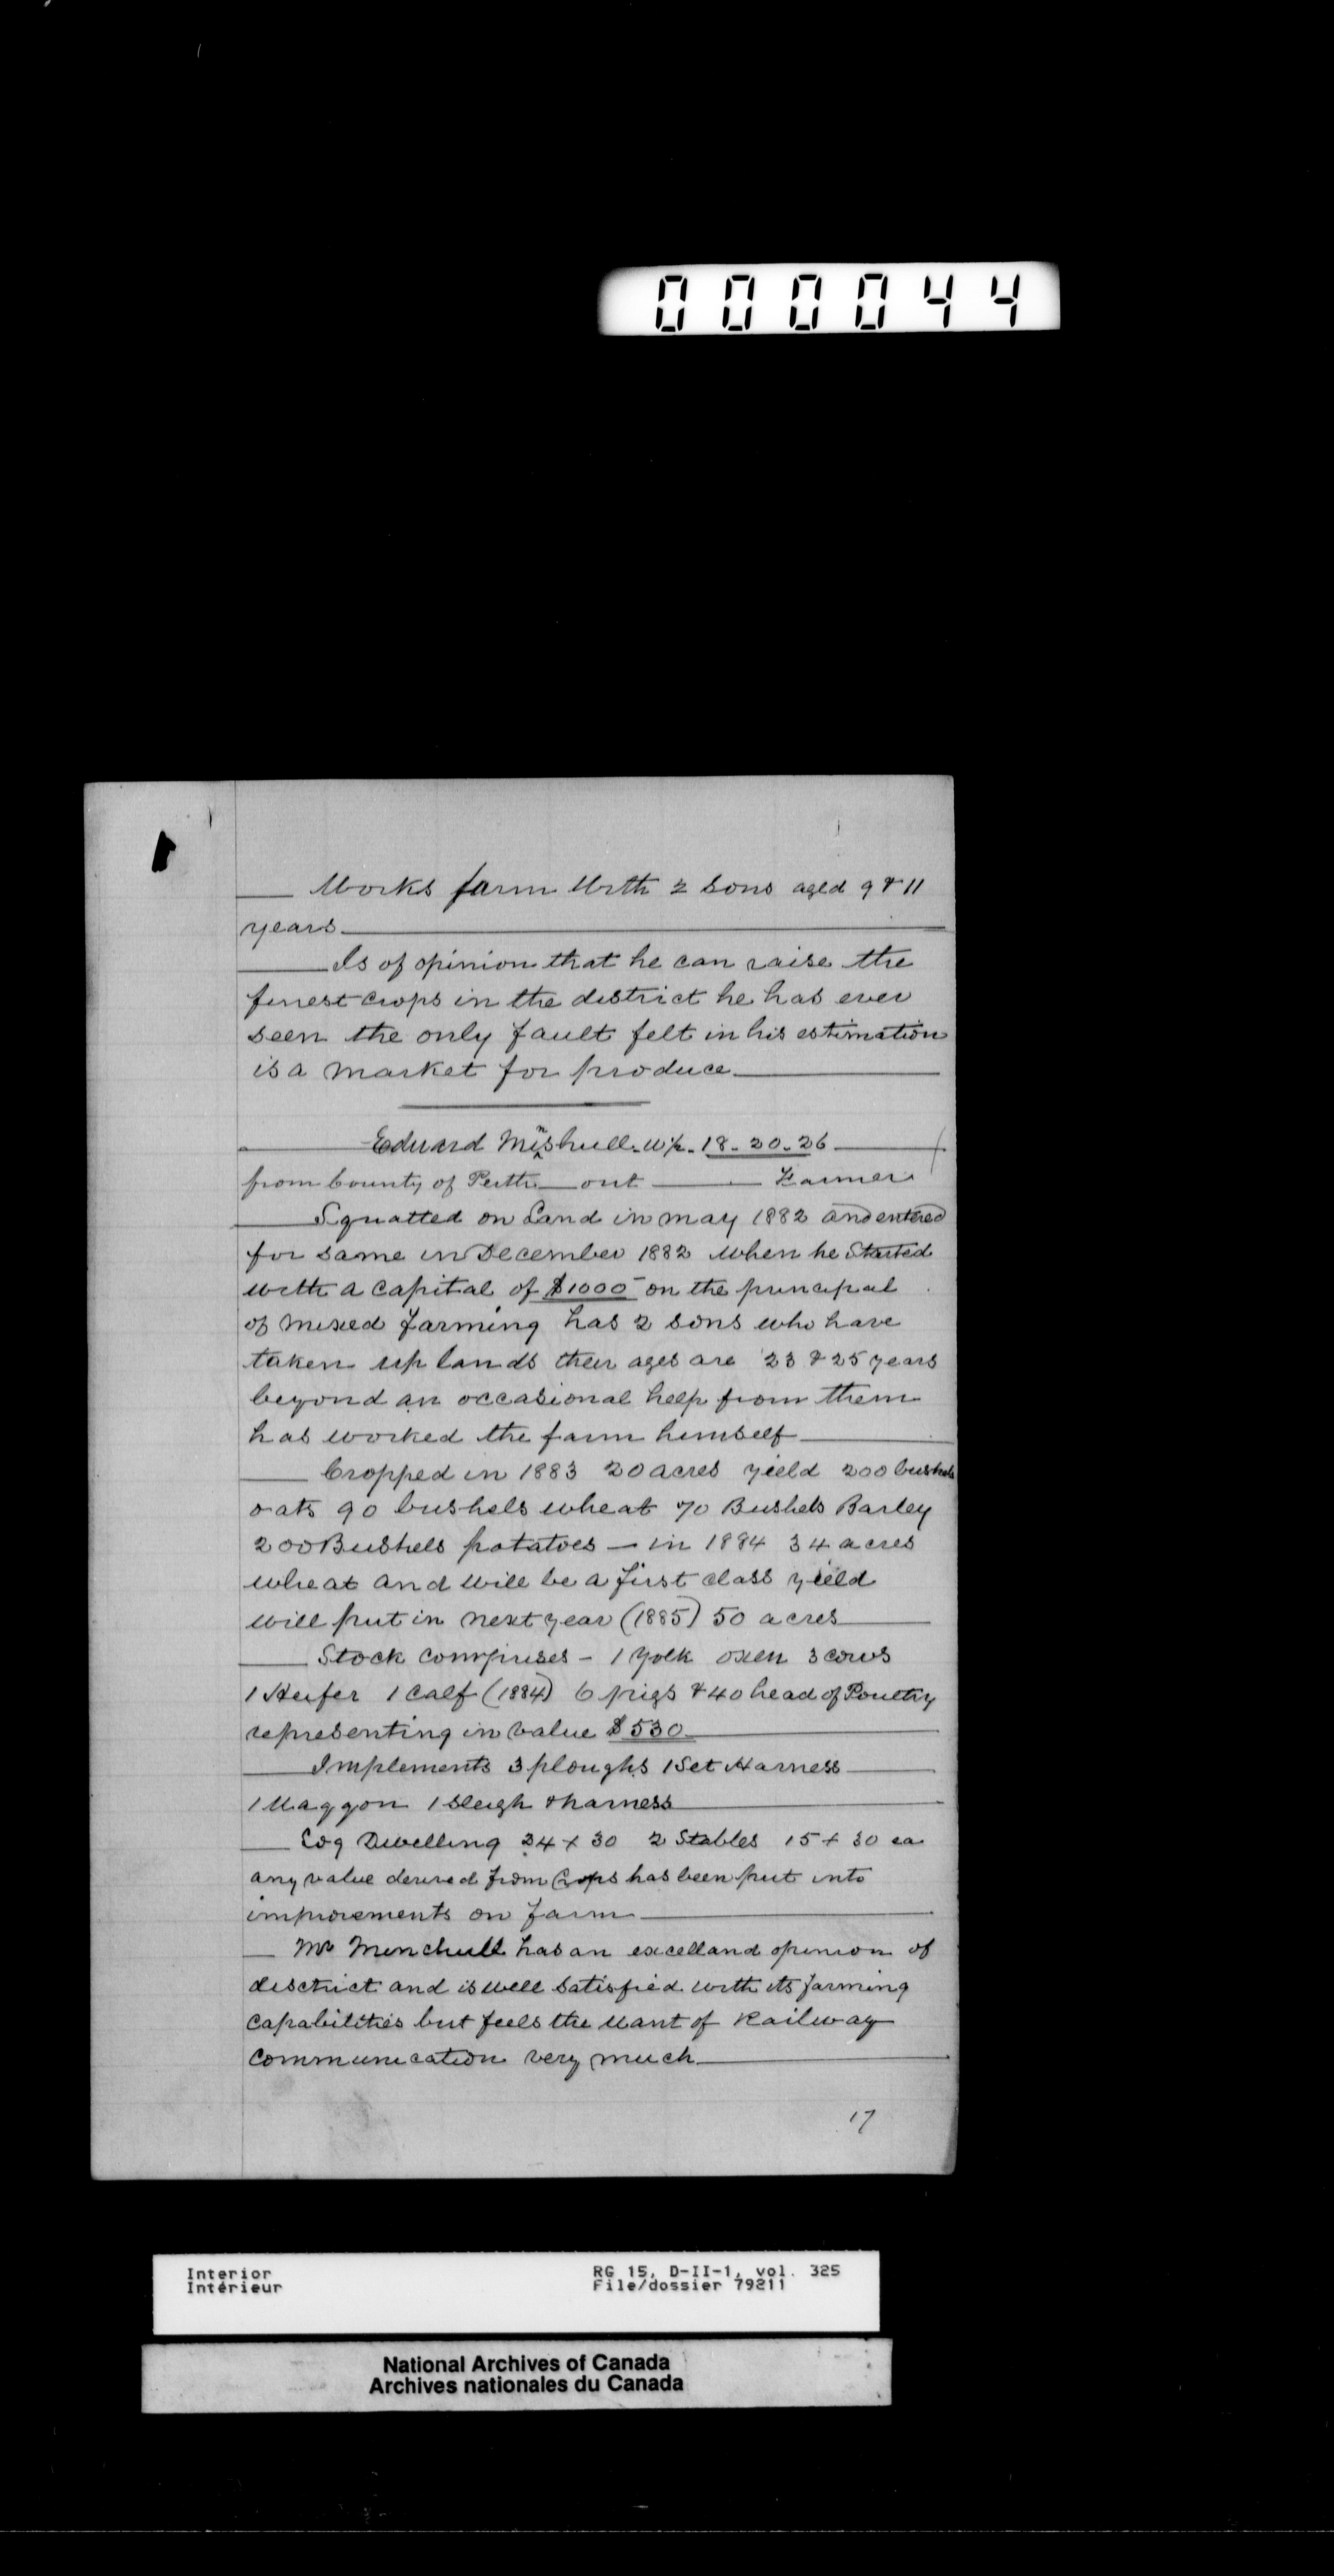 000044
Works farm With 2 sons aged 9 & 11
years
Is of opinion that he can raise the
finest crops in the district he has ever
seen the only fault felt in his estimation
is a market for produce
Edward Minshull. 18. 20. 26
from County of Perth ont Farmer
Squatted on Land in may 1882 and entered
for same in December 1882 when he started
with a capital of $1000 on the principal
of mixed farming has 2 sons who have
taken up lands their ages are 23 & 25 years
beyond an occasional help from them
has worked the farm himself
Cropped in 1883 20 acres yield 200 bushels
oats 90 bushels wheat 70 Bushels Barley
200 Bushels potatoes - in 1884 34 acres
wheat and will be a first class yield
will put in next year (1885) 50 acres
Stock comprises - 1 yolk oxen 3 cows
1 Heifer 1 calf (1884) 6 pigs & 40 head of Poultry
representing in value $530
Implements 3 ploughs 1 Set Harness
1 Waggon 1 sleigh & harness
Log Dwelling 24 x 30 2 Stables 15 x 30 ea
any value derived from Crops has been put into
improvements on farm
Mr Minchull has an excelland opinion of
disctrict and is well satisfied with its farming
capabilities but feels the want of Railway
communication very much
17
Interior RG 15, D-II-1, vol. 325
Intérieur File/dossier 79211
National Archives of Canada
Archives nationales du Canada